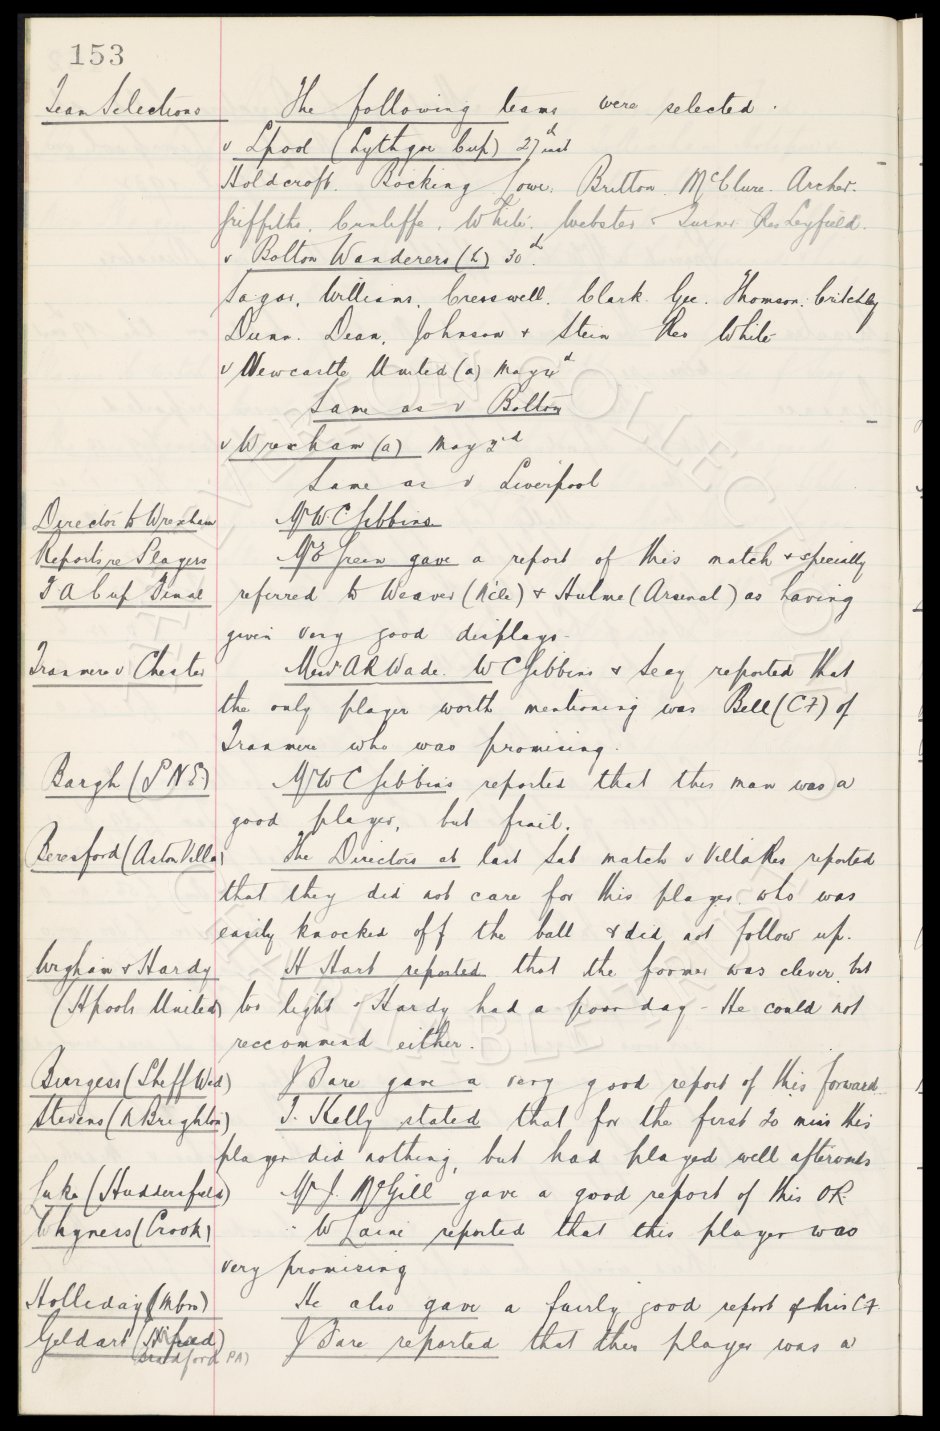 153
Team Selections The following teams were selected.
v Lpool (Lythgoe Cup) 27th inst
Holdcroft. Bocking Lowe. Britton. McClure. Archer.
Griffiths, Cunliffe, White. Webster & Turner Res Leyfield.
v Bolton Wanderers (h) 30th.
Sagar, Williams, Cresswell. Clark. Gee. Thomson. Critchley
Dunn. Dean, Johnson & Stein Res White
v Newcastle United (a) May
Same as v Bolton
v Wrexham (a) May 2nd
Same as v Liverpool
Director to Wrexham Mr W C Gibbins
Reports re Players Mr E Green gave a report of this match & specially
F A Cup Final referred to Weaver (N'cle) & Hulme (Arsenal) as having
given very good displays.
Tranmere v Chester Messrs A R Wade. W C Gibbins & Secy reported that
the only player worth mentioning was Bell (CF) of
Tranmere who was promising.
Bargh (P N E) Mr W C Gibbins reported that this man was a
good player, but frail.
Beresford (Aston Villa) The Directors at last Sat match v Villa Res reported
that they did not care for this player, who was
easily knocked off the ball & did not follow up.
Wigham & Hardy H Hart reported that the former was clever, but
(Hpools United) too light & Hardy had a poor day - He could not
reccommend either.
Burgess (Sheff Wed) J Dare gave a very good report of this forward
Stevens (N Brighton) T. Kelly stated that for the first 20 mins this
player did nothing, but had played well afterwards
Luke (Huddersfield) Mr J. McGill gave a good report of this OR.
Whyness (Crook) " W Laine reported that this player was
very promising
Holliday (Mbro) He also gave a fairly good report of this CF
Geldart ( J Dare reported that this player was a
Bradford PA)